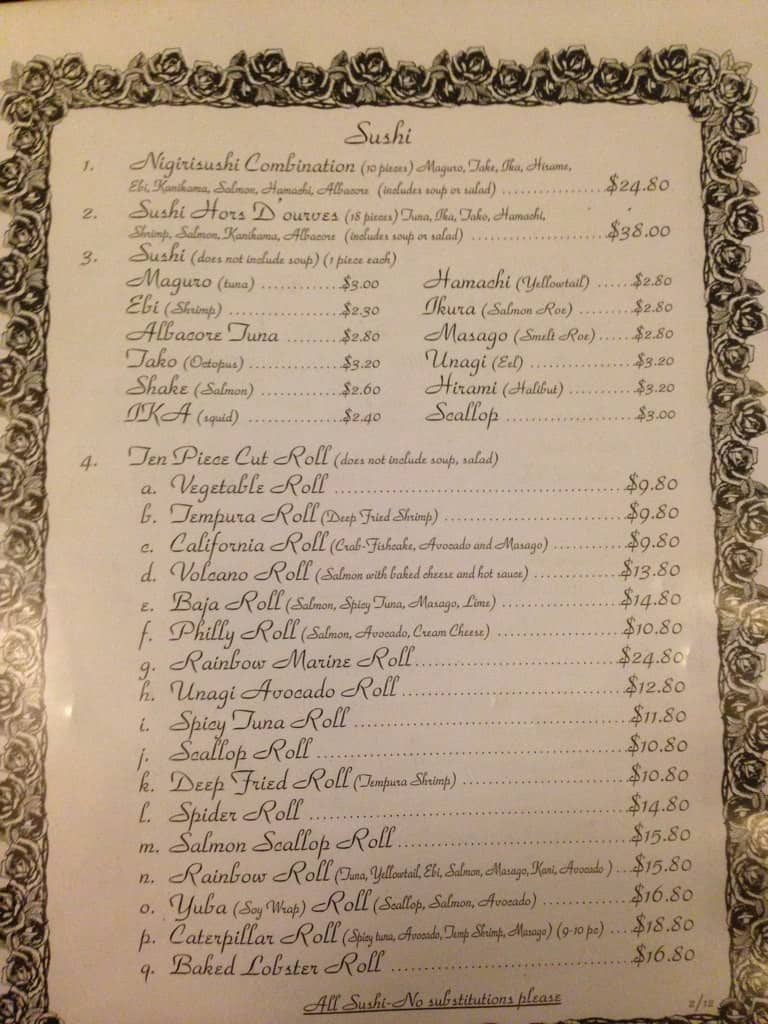 Sushi
1. Nigirisushi Combination (10 pieces) Maguro, Take, Ika, Hirame,
Ebi, Kanikama, Salmon, Hamachi, Albacore (includes soup or salad) .................. $24.80
2. Sushi Hors D'ourves (18 pieces) Tuna, Ika, Tako, Hamachi,
Shrimp, Salmon, Kanikama, Albacore (includes soup or salad) ....................... $38.00
3. Sushi (does not include soup) (1 piece each)
Maguro (tuna) .............. $3.00 Hamachi (Yellowtail) ..... $2.80
Ebi (Shrimp) ................. $2.30 Ikura (Salmon Roe) ........ $2.80
Albacore Tuna ........ $2.80 Masago (Smelt Roe) ...... $2.80
Tako (Octopus) ............... $3.20 Unagi (Eel) .................. $3.20
Shake (Salmon) .............. $2.60 Hirami (Halibut) .......... $3.20
IKA (squid) ................. $2.40 Scallop ..................... $3.00
4. Ten Piece Cut Roll (does not include soup, salad)
a. Vegetable Roll .......................................... $9.80
b. Tempura Roll (Deep Fried Shrimp) .......................... $9.80
c. California Roll (Crab-Fishcake, Avocado and Masago) ........... $9.80
d. Volcano Roll (Salmon with baked cheese and hot sauce) ............. $13.80
e. Baja Roll (Salmon, Spicy Tuna, Masago, Lime) .................. $14.80
f. Philly Roll (Salmon, Avocado, Cream Cheese) .................. $10.80
g. Rainbow Marine Roll ............................. $24.80
h. Unagi Avocado Roll ................................ $12.80
i. Spicy Tuna Roll ....................................... $11.80
j. Scallop Roll ............................................ $10.80
k. Deep Fried Roll (Tempura Shrimp) ....................... $10.80
l. Spider Roll ............................................. $14.80
m. Salmon Scallop Roll ................................ $15.80
n. Rainbow Roll (Tuna, Yellowtail, Ebi, Salmon, Masago, Kani, Avocado ) ... $15.80
o. Yuba (Soy Wrap) Roll (Scallop, Salmon, Avocado) ............. $16.80
p. Caterpillar Roll (Spicy tuna, Avocado, Temp Shrimp, Masago) (9-10 pc) .... $18.80
q. Baked Lobster Roll ................................. $16.80
All Sushi-No substitutions please
2/12